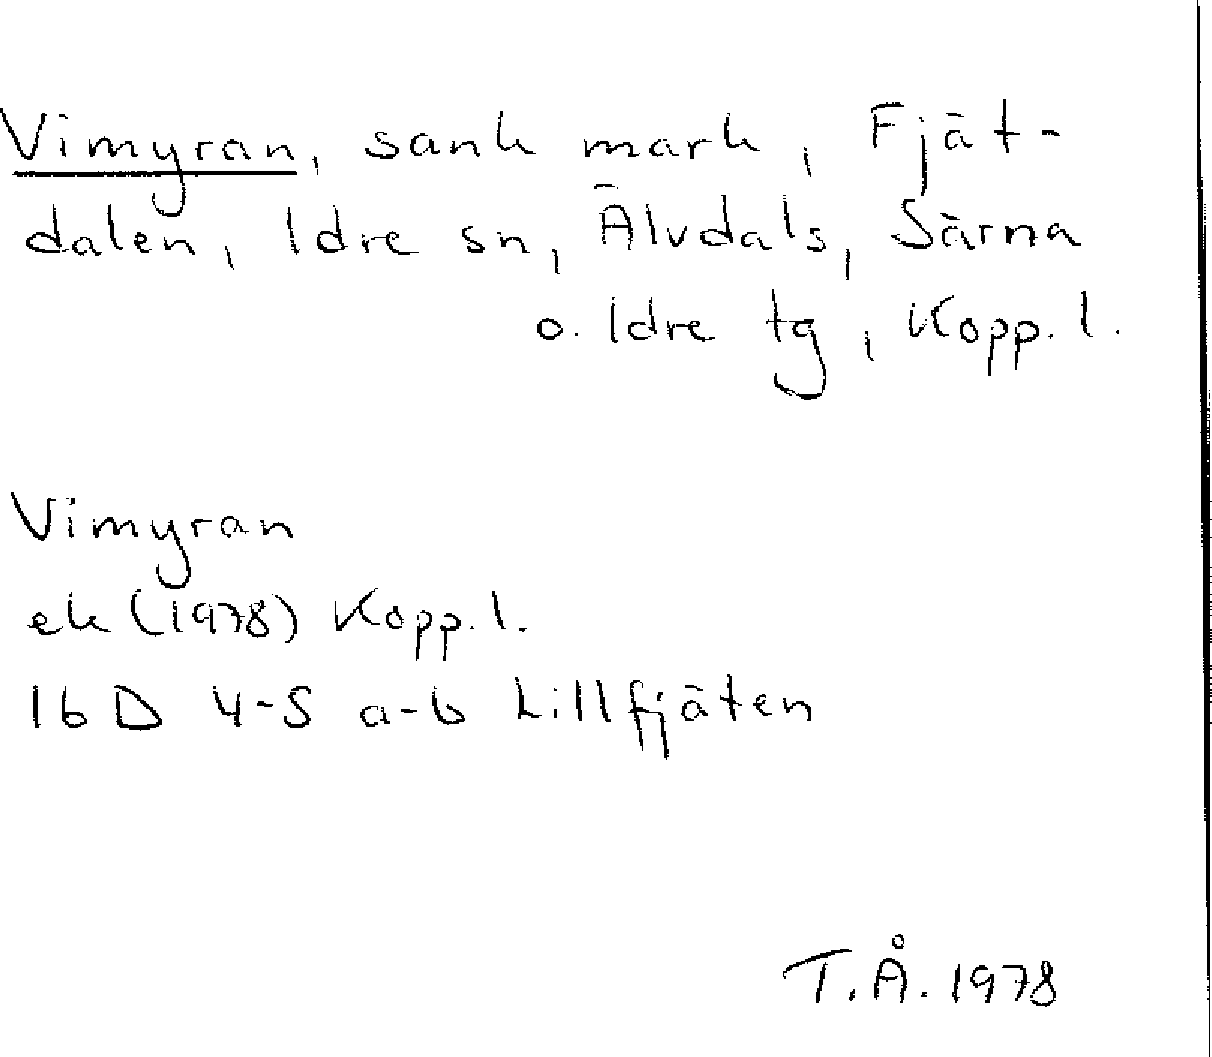 Vimyran, sank mark, Fjät-
dalen, Idre sn, Älvdals, Särna
o. Idre tg, Kopp. l.
Vimyran
ek (1978) Kopp. l.
16 D 4-5 a-b Lillfjäten
T.Å. 1978